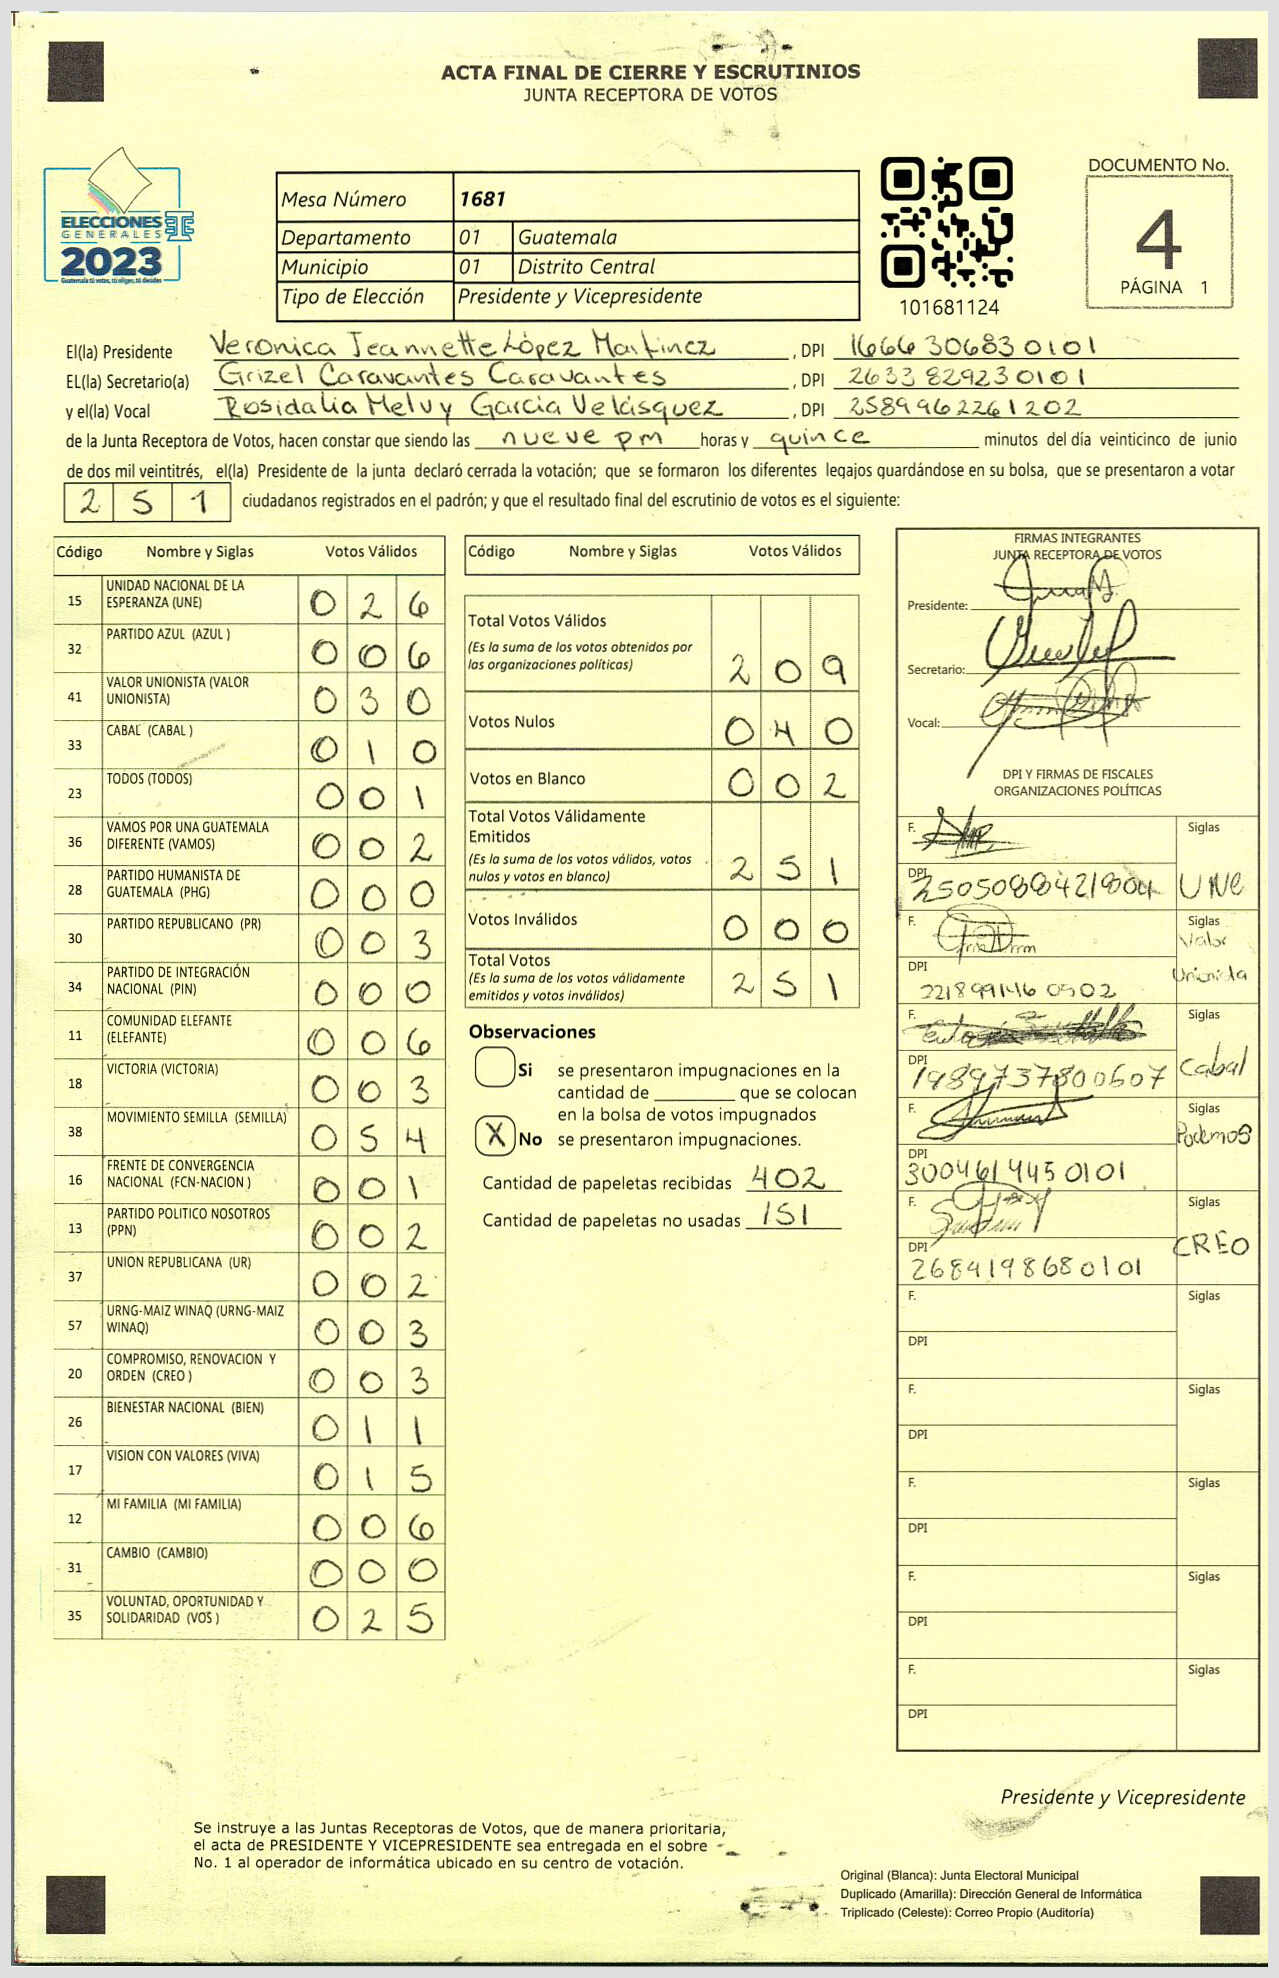 ACTA FINAL DE CIERRE Y ESCRUTINIOS
JUNTA RECEPTORA DE VOTOS
ELECCIONES
GENERALES
2023
Guatemala tú votas, tú eliges, tú decides
Mesa Número 1681
Departamento 01 Guatemala
Municipio 01 Distrito Central
Tipo de Elección Presidente y Vicepresidente
101681124
DOCUMENTO No.
4
PÁGINA 1
El(la) Presidente Veronica Jeannette López Martinez , DPI 1666306830101
EL(la) Secretario(a) Grizel Caravantes Caravantes , DPI 2633829230101
y el(la) Vocal Rosidalia Melvy Garcia Velásquez , DPI 2589962261202
de la Junta Receptora de Votos, hacen constar que siendo las nueve pm horas y quince minutos del día veinticinco de junio
de dos mil veintitrés, el(la) Presidente de la junta declaró cerrada la votación; que se formaron los diferentes legajos quardándose en su bolsa, que se presentaron a votar
2 5 1 ciudadanos registrados en el padrón; y que el resultado final del escrutinio de votos es el siguiente:
Código Nombre y Siglas Votos Válidos
15 UNIDAD NACIONAL DE LA ESPERANZA (UNE) 0 2 6
32 PARTIDO AZUL (AZUL ) 0 0 6
41 VALOR UNIONISTA (VALOR UNIONISTA) 0 3 0
33 CABAL (CABAL ) 0 1 0
23 TODOS (TODOS) 0 0 1
36 VAMOS POR UNA GUATEMALA DIFERENTE (VAMOS) 0 0 2
28 PARTIDO HUMANISTA DE GUATEMALA (PHG) 0 0 0
30 PARTIDO REPUBLICANO (PR) 0 0 3
34 PARTIDO DE INTEGRACIÓN NACIONAL (PIN) 0 0 0
11 COMUNIDAD ELEFANTE (ELEFANTE) 0 0 6
18 VICTORIA (VICTORIA) 0 0 3
38 MOVIMIENTO SEMILLA (SEMILLA) 0 5 4
16 FRENTE DE CONVERGENCIA NACIONAL (FCN-NACION ) 0 0 1
13 PARTIDO POLITICO NOSOTROS (PPN) 0 0 2
37 UNION REPUBLICANA (UR) 0 0 2
57 URNG-MAIZ WINAQ (URNG-MAIZ WINAQ) 0 0 3
20 COMPROMISO, RENOVACION Y ORDEN (CREO ) 0 0 3
26 BIENESTAR NACIONAL (BIEN) 0 1 1
17 VISION CON VALORES (VIVA) 0 1 5
12 MI FAMILIA (MI FAMILIA) 0 0 6
31 CAMBIO (CAMBIO) 0 0 0
35 VOLUNTAD, OPORTUNIDAD Y SOLIDARIDAD (VOS ) 0 2 5
Código Nombre y Siglas Votos Válidos
Total Votos Válidos
(Es la suma de los votos obtenidos por
las organizaciones políticas) 2 0 9
Votos Nulos 0 4 0
Votos en Blanco 0 0 2
Total Votos Válidamente
Emitidos
(Es la suma de los votos válidos, votos
nulos y votos en blanco) 2 5 1
Votos Inválidos 0 0 0
Total Votos
(Es la suma de los votos válidamente
emitidos y votos inválidos) 2 5 1
Observaciones
Si se presentaron impugnaciones en la
cantidad de ________ que se colocan
en la bolsa de votos impugnados
X No se presentaron impugnaciones.
Cantidad de papeletas recibidas 402
Cantidad de papeletas no usadas 151
FIRMAS INTEGRANTES
JUNTA RECEPTORA DE VOTOS
Presidente:
Secretario:
Vocal:
DPI Y FIRMAS DE FISCALES
ORGANIZACIONES POLÍTICAS
F. Siglas
DPI 2505088421804 UNE
F. Siglas
Valor
Unionista
DPI
F. Siglas
DPI 1989737800607 Cabal
F. Siglas
Podemos
DPI
3004614450101
F. Siglas
CREO
DPI
2684198680101
F. Siglas
DPI
F. Siglas
DPI
F. Siglas
DPI
F. Siglas
DPI
F. Siglas
DPI
Presidente y Vicepresidente
Se instruye a las Juntas Receptoras de Votos, que de manera prioritaria,
el acta de PRESIDENTE Y VICEPRESIDENTE sea entregada en el sobre
No. 1 al operador de informática ubicado en su centro de votación.
Original (Blanca): Junta Electoral Municipal
Duplicado (Amarilla): Dirección General de Informática
Triplicado (Celeste): Correo Propio (Auditoría)